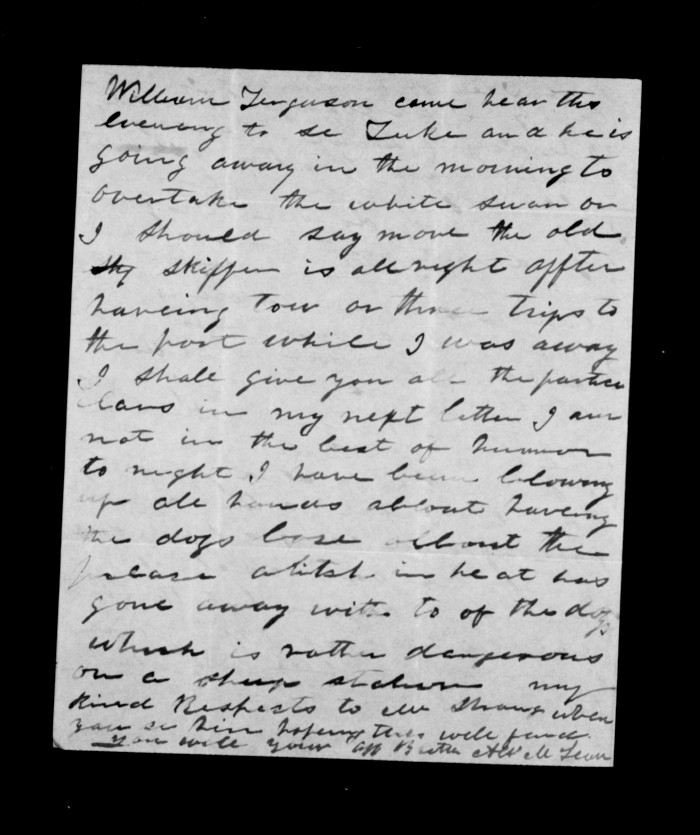 William Ferguson came hear this
evening to se Luke and he is
going away in the morning to
overtake the white swan or
I should say move the old
skipper is all right affter
haveing tow or three trips to
the port while I was away
I shall give you all the particu
lars in my next letter I am
not in the best of humor
to night I have been blowing
up all hands about haveing
the dogs lose about the
please a bitch in heat has
gone away with to of the dogs
which is rather dangerous
on a sheep station my
kind Respects to Mr Strang when
you se him hopeing this will find
you well your aff Brother McLean